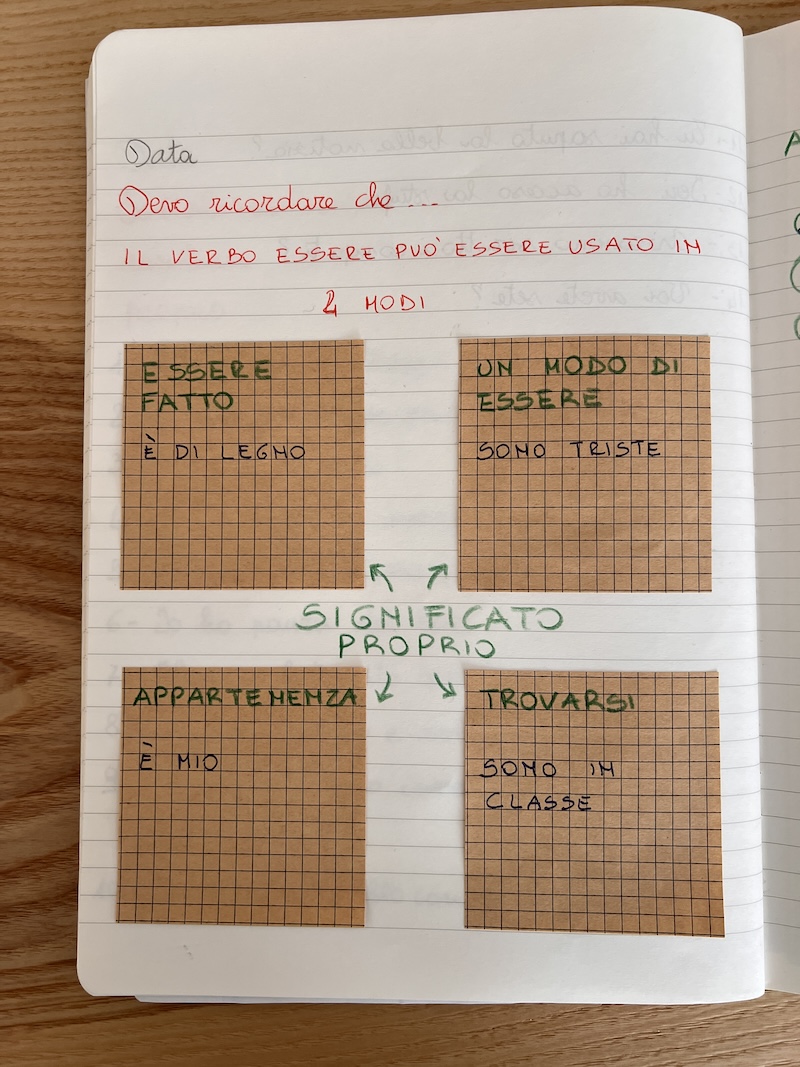 Data
Devo ricordare che...
IL VERBO ESSERE PUÒ ESSERE USATO IN
4 MODI
ESSERE
FATTO
È DI LEGNO
UN MODO DI
ESSERE
SONO TRISTE
SIGNIFICATO
PROPRIO
APPARTENENZA
È MIO
TROVARSI
SONO IN
CLASSE